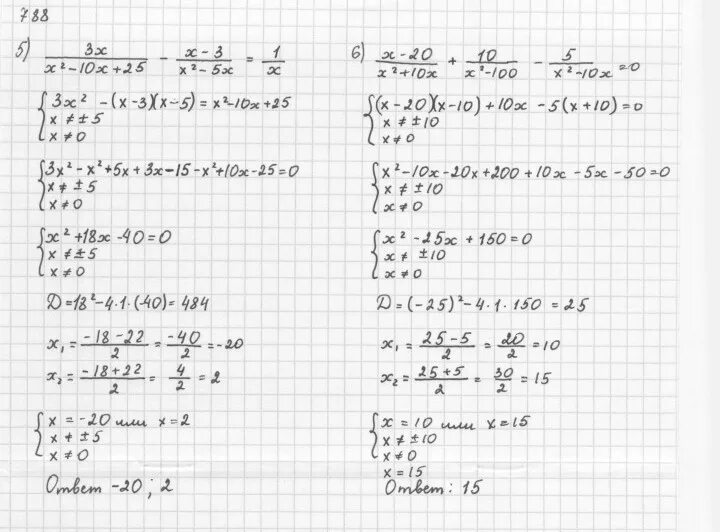 788
5) 3x / (x² – 10x + 25) – (x – 3) / (x² – 5x) = 1 / x
{ 3x² – (x – 3)(x – 5) = x² – 10x + 25
x ≠ ± 5
x ≠ 0
{ 3x² – x² + 5x + 3x – 15 – x² + 10x – 25 = 0
x ≠ ± 5
x ≠ 0
{ x² + 18x – 40 = 0
x ≠ ± 5
x ≠ 0
D = 18² – 4·1·(–40) = 484
x₁ = (–18 – 22) / 2 = –40 / 2 = –20
x₂ = (–18 + 22) / 2 = 4 / 2 = 2
{ x = –20 или x = 2
x ≠ ± 5
x ≠ 0
Ответ –20 ; 2
6) (x – 20) / (x² + 10x) + 10 / (x² – 100) – 5 / (x² – 10x) = 0
{ (x – 20)(x – 10) + 10x – 5(x + 10) = 0
x ≠ ± 10
x ≠ 0
{ x² – 10x – 20x + 200 + 10x – 5x – 50 = 0
x ≠ ± 10
x ≠ 0
{ x² – 25x + 150 = 0
x ≠ ± 10
x ≠ 0
D = (–25)² – 4·1·150 = 25
x₁ = (25 – 5) / 2 = 20 / 2 = 10
x₂ = (25 + 5) / 2 = 30 / 2 = 15
{ x = 10 или x = 15
x ≠ ± 10
x ≠ 0
x = 15
Ответ: 15